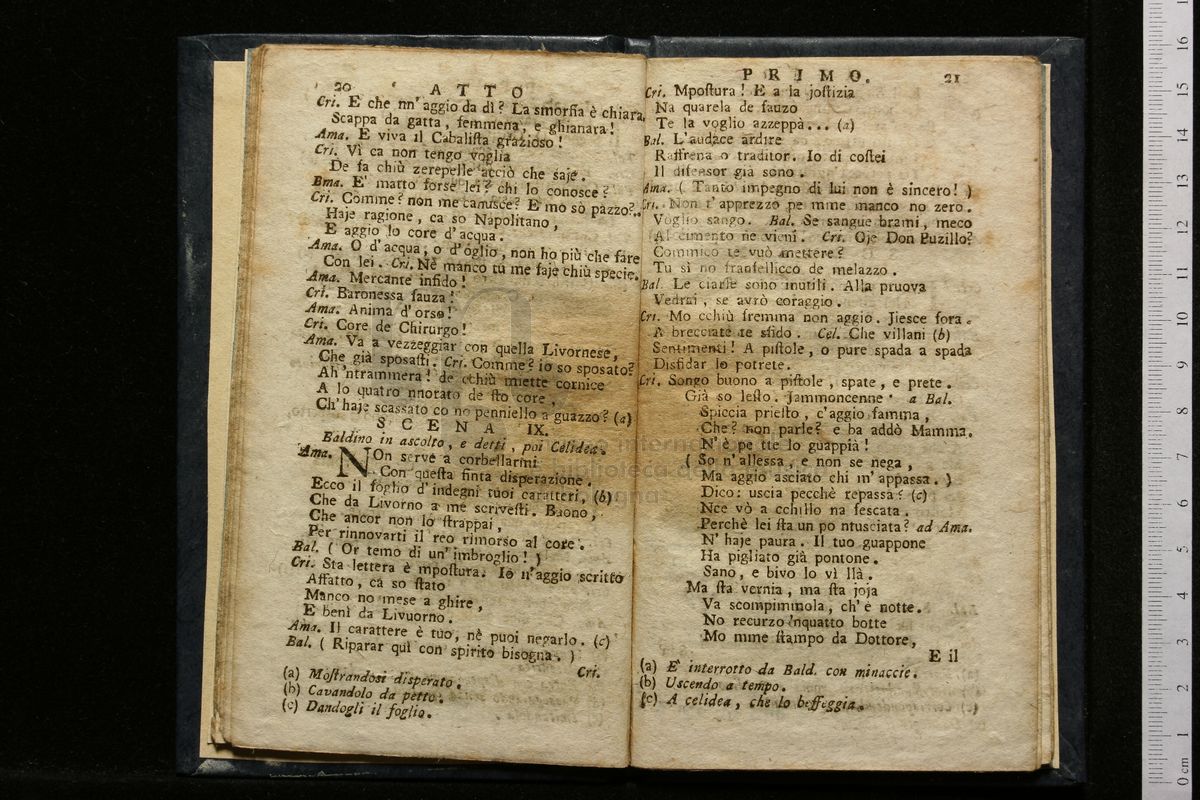 20 ATTO
Cri. E che nn' aggio da dì? La smorfia è chiara,
Scappa da gatta, femmena, e ghianara!
Ama. E viva il Cabalista grazioso!
Cri. Vì ca non tengo voglia
De fa chiù zerepelle acciò che saje.
Bma. E' matto forse lei? chi lo conosce?
Cri. Comme? non me canusce? E mo sò pazzo?..
Haje ragione, ca so Napolitano,
E aggio lo core d'acqua.
Ama. O d'acqua, o d'oglio, non ho più che fare
Con lei. Cri. Nè manco tu me faje chiù specie.
Ama. Mercante infido!
Cri. Baronessa fauza!
Ama. Anima d'orso!
Cri. Core de Chirurgo!
Ama. Va a vezzeggiar con quella Livornese,
Che già sposasti. Cri. Comme? io so sposato?
Ah 'ntrammera! de cchiù miette cornice
A lo quatro nnorato de sto core,
Ch' haje scassato co no penniello a guazzo? (a)
SCENA IX.
Baldino in ascolto, e detti, poi Celidea.
Ama. NOn serve a corbellarmi
Con questa finta disperazione.
Ecco il foglio d'indegni tuoi caratteri, (b)
Che da Livorno a me scrivesti. Buono,
Che ancor non lo strappai,
Per rinnovarti il reo rimorso al core.
Bal. ( Or temo di un' imbroglio! )
Cri. Sta lettera è mpostura. Io n'aggio scritto
Affatto, ca so stato
Manco no mese a ghire,
E benì da Livuorno.
Ama. Il carattere è tuo, nè puoi negarlo. (c)
Bal. ( Riparar quì con spirito bisogna. )
Cri.
(a) Mostrandosi disperato.
(b) Cavandolo da petto.
(c) Dandogli il foglio.
PRIMO. 21
Cri. Mpostura! E a la jostizia
Na quarela de fauzo
Te la voglio azzeppà... (a)
Bal. L'audace ardire
Raffrena o traditor. Io di costei
Il difensor già sono.
Ama. ( Tanto impegno di lui non è sincero! )
Cri. Non t'apprezzo pe mme manco no zero.
Voglio sango. Bal. Se sangue brami, meco
Al cimento ne vieni. Cri. Oje Don Puzillo?
Commico te vuò mettere?
Tu sì no franfellicco de melazzo.
Bal. Le ciarle sono inutili. Alla pruova
Vedrai, se avrò coraggio.
Cri. Mo cchiù fremma non aggio. Jiesce fora.
A brecciate te sfido. Cel. Che villani (b)
Sentimenti! A pistole, o pure spada a spada
Disfidar lo potrete.
Cri. Songo buono a pistole, spate, e prete.
Già so lesto. Jammoncenne a Bal.
Spiccia priesto, c'aggio famma,
Che? non parle? e ba addò Mamma.
N'è pe tte lo guappià!
( So n'allessa, e non se nega,
Ma aggio asciato chi m'appassa. )
Dico: uscia pecchè repassa? (c)
Nce vò a cchillo na fescata.
Perchè lei sta un po ntusciata? ad Ama.
N'haje paura. Il tuo guappone
Ha pigliato già pontone.
Sano, e bivo lo vì llà.
Ma sta vernia, ma sta joja
Va scompimmola, ch'è notte.
No recurzo 'nquatto botte
Mo mme stampo da Dottore,
E il
(a) E' interrotto da Bald. con minaccie.
(b) Uscendo a tempo.
(c) A celidea, che lo beffeggia.